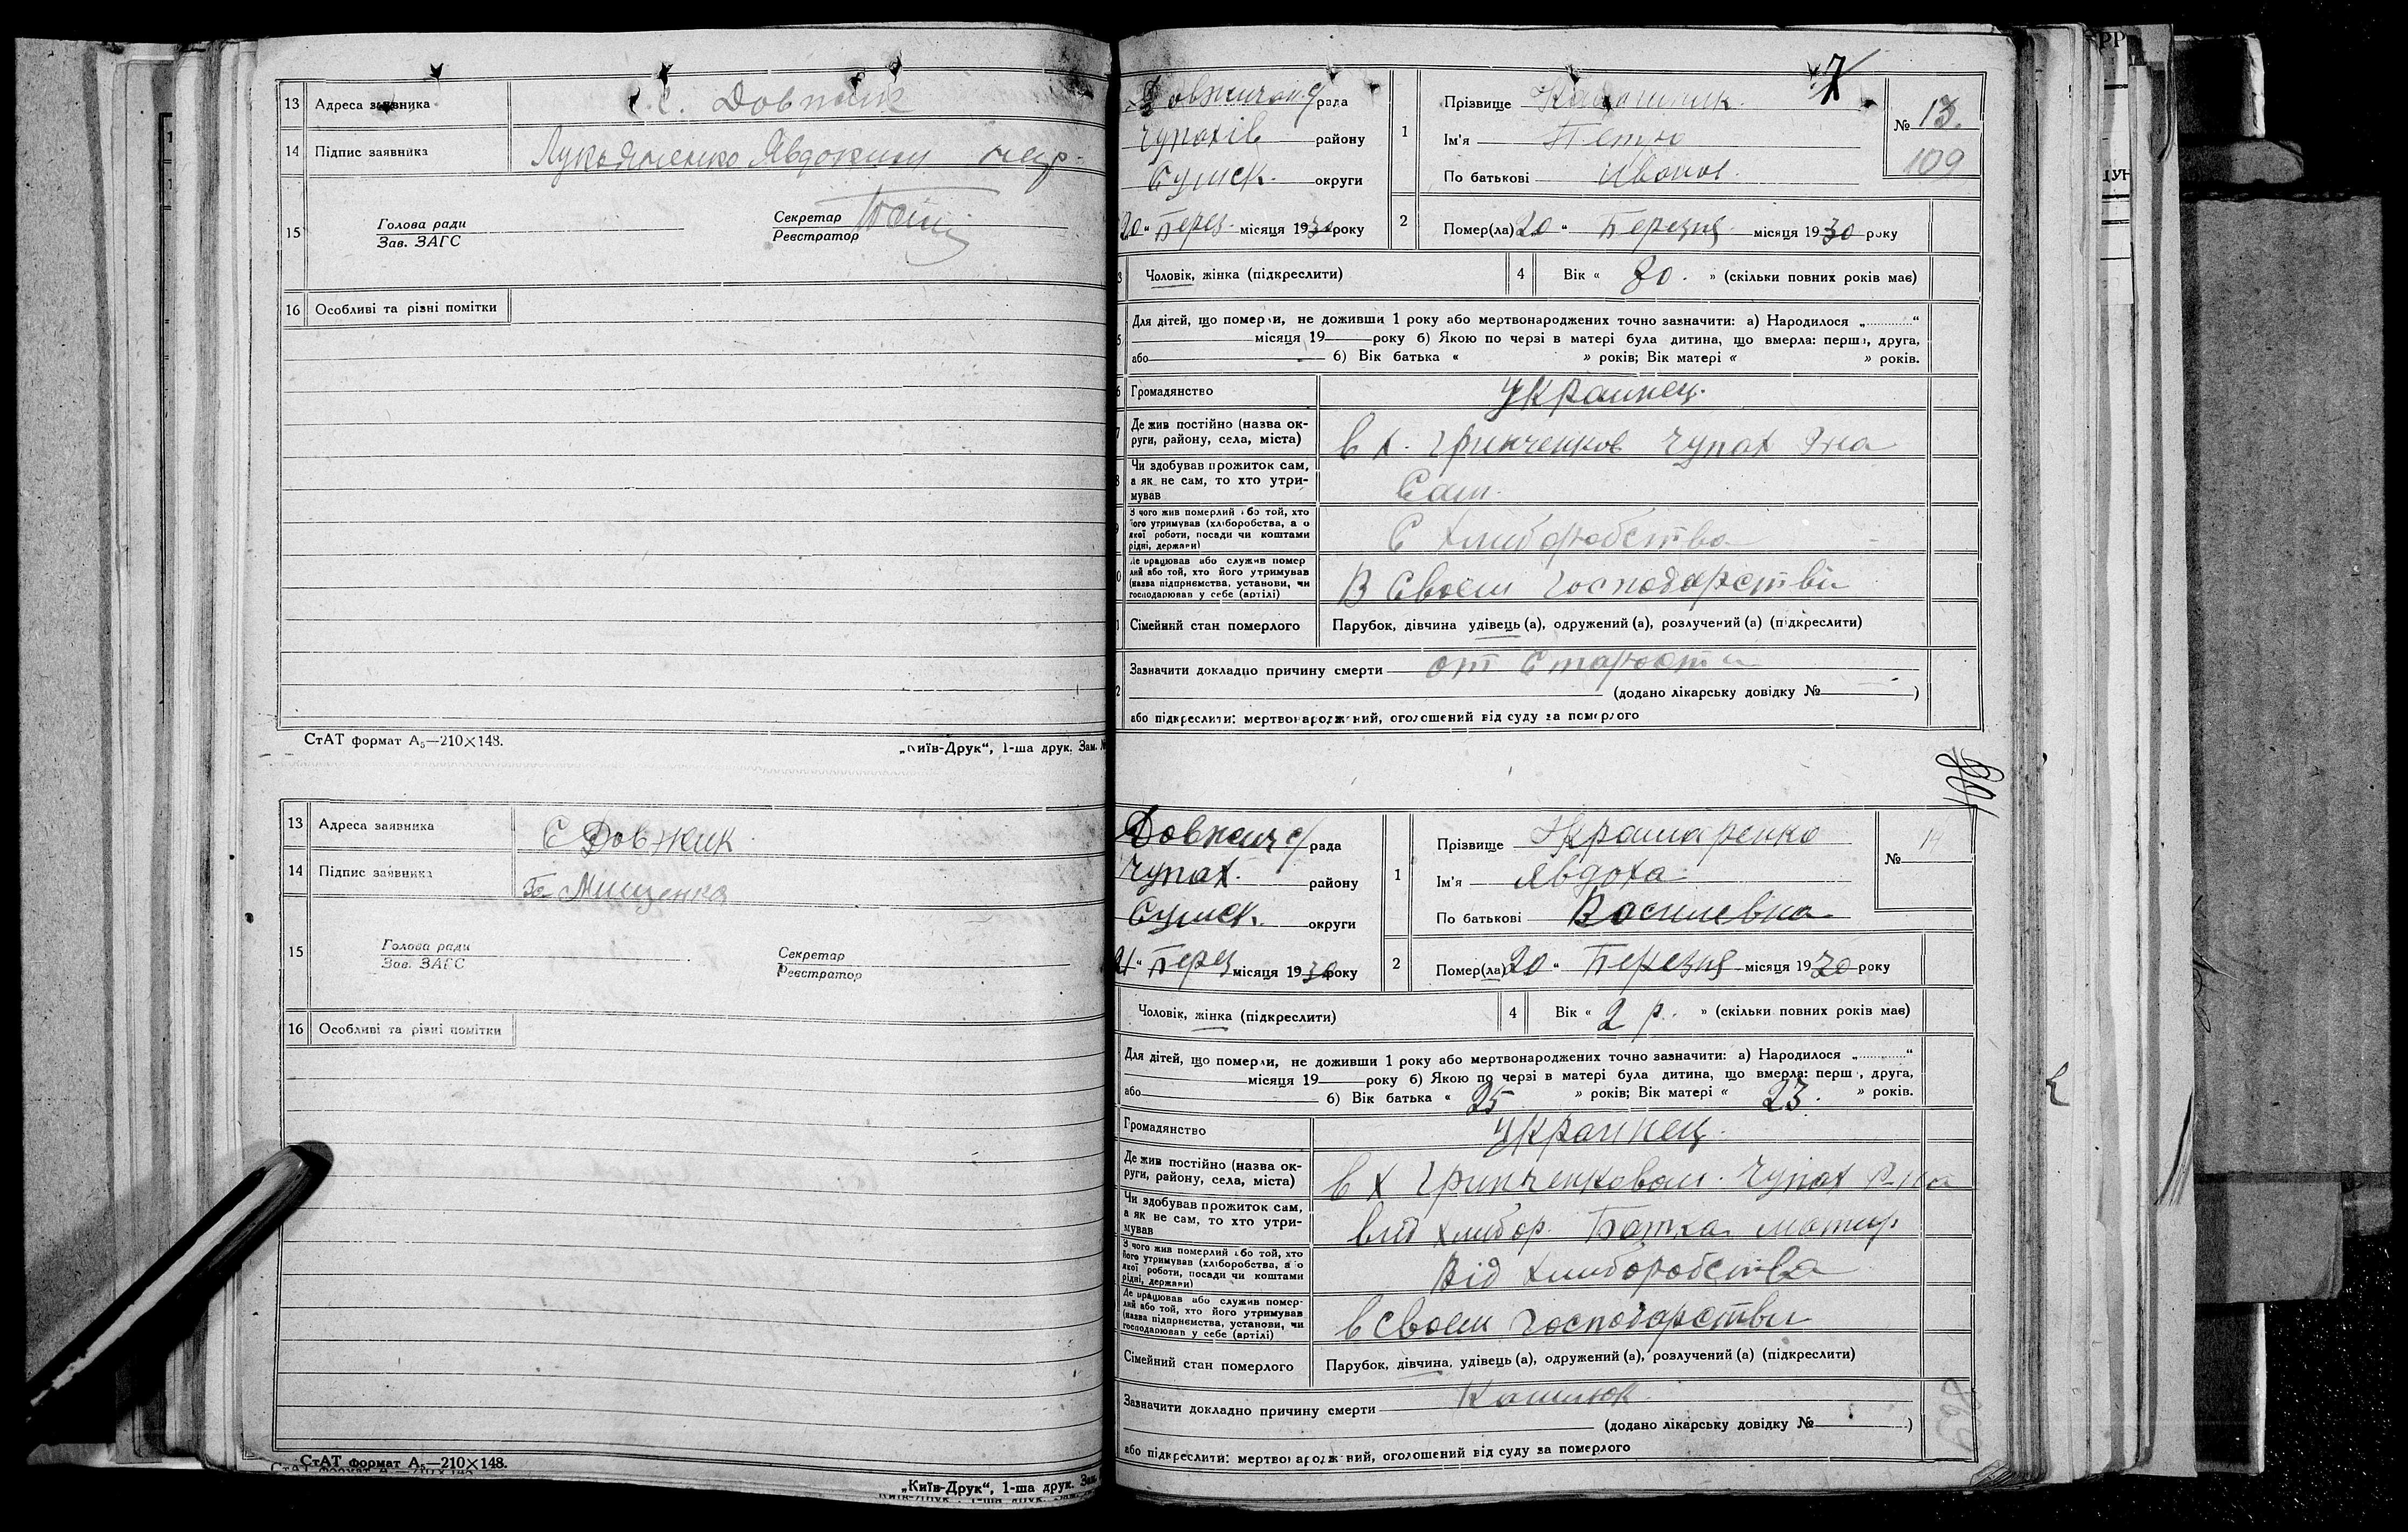 13 Адреса заявника с. Довжик
14 Підпис заявника Лукьяненко Явдокии
15 Голова ради
Зав. ЗАГС
Секретар
Реєстратор
16 Особливі та різні помітки
СтАТ формат А₅—210×148.
„Київ-Друк“, 1-ша друк. Зам. №
13 Адреса заявника С Довжик
14 Підпис заявника За Мищенка
15 Голова ради
Зав. ЗАГС
Секретар
Реєстратор
16 Особливі та різні помітки
СтАТ формат А₅—210×148.
„Київ-Друк“, 1-ша друк. Зам.
7
рада
Чупахів району
Сумск. округи
20 " Берез. місяця 1930 року
1 Прізвище
Ім'я Петро
По батькові Иванов.
№ 13.
109
2 Помер(ла) 20 " Березня місяця 1930 року
3 Чоловік, жінка (підкреслити)
4 Вік « 80. » (скільки повних років має)
Для дітей, що померли, не доживши 1 року або мертвонароджених точно зазначити: а) Народилося „............“
місяця 19 року б) Якою по черзі в матері була дитина, що вмерла: перша, друга,
або б) Вік батька « » років; Вік матері « » років.
Громадянство Украинец.
Де жив постійно (назва округи, району, села, міста) в х. Гринченков Чупах Рна
Чи здобував прожиток сам, а як не сам, то хто утримував Сам.
З чого жив померлий або той, хто його утримував (хліборобства, а о якої роботи, посади чи коштами рідні, держави) С хлиборобства
Де працював або служив померлий або той, хто його утримував (назва підприємства, установи, чи господарював у себе (артілі) В своем господарстви
Сімейний стан померлого Парубок, дівчина удівець (а), одружений (а), розлучений (а) (підкреслити)
Зазначити докладно причину смерти от старости
(додано лікарську довідку № )
або підкреслити: мертвонароджений, оголошений від суду за померлого
Довжич с/рада
Чупах. району
Сумск. округи
21 " Берез місяця 1930 року
1 Прізвище Крамаренко
Ім'я Явдоха
По батькові Василевна
№ 14
2 Помер(ла) 20 " Березня місяця 1930 року
Чоловік, жінка (підкреслити)
4 Вік « 2 р. » (скільки повних років має)
Для дітей, що померли, не доживши 1 року або мертвонароджених точно зазначити: а) Народилося „............“
місяця 19 року б) Якою по черзі в матері була дитина, що вмерла: перш, друга,
або б) Вік батька « 25 » років; Вік матері « 23. » років.
Громадянство Украинец.
Де жив постійно (назва округи, району, села, міста) в х Гринченковом. Чупах Р-на
Чи здобував прожиток сам, а як не сам, то хто утримував вид хлибор. Батка матир
З чого жив померлий або той, хто його утримував (хліборобства, а о якої роботи, посади чи коштами рідні, держави) Від хлиборобства
Де працював або служив померлий або той, хто його утримував (назва підприємства, установи, чи господарював у себе (артілі) в своем господарстви
Сімейний стан померлого Парубок, дівчина, удівець (а), одружений (а), розлучений (а) (підкреслити)
Зазначити докладно причину смерти Кашлюк
(додано лікарську довідку № )
або підкреслити: мертвонароджений, оголошений від суду за померлого